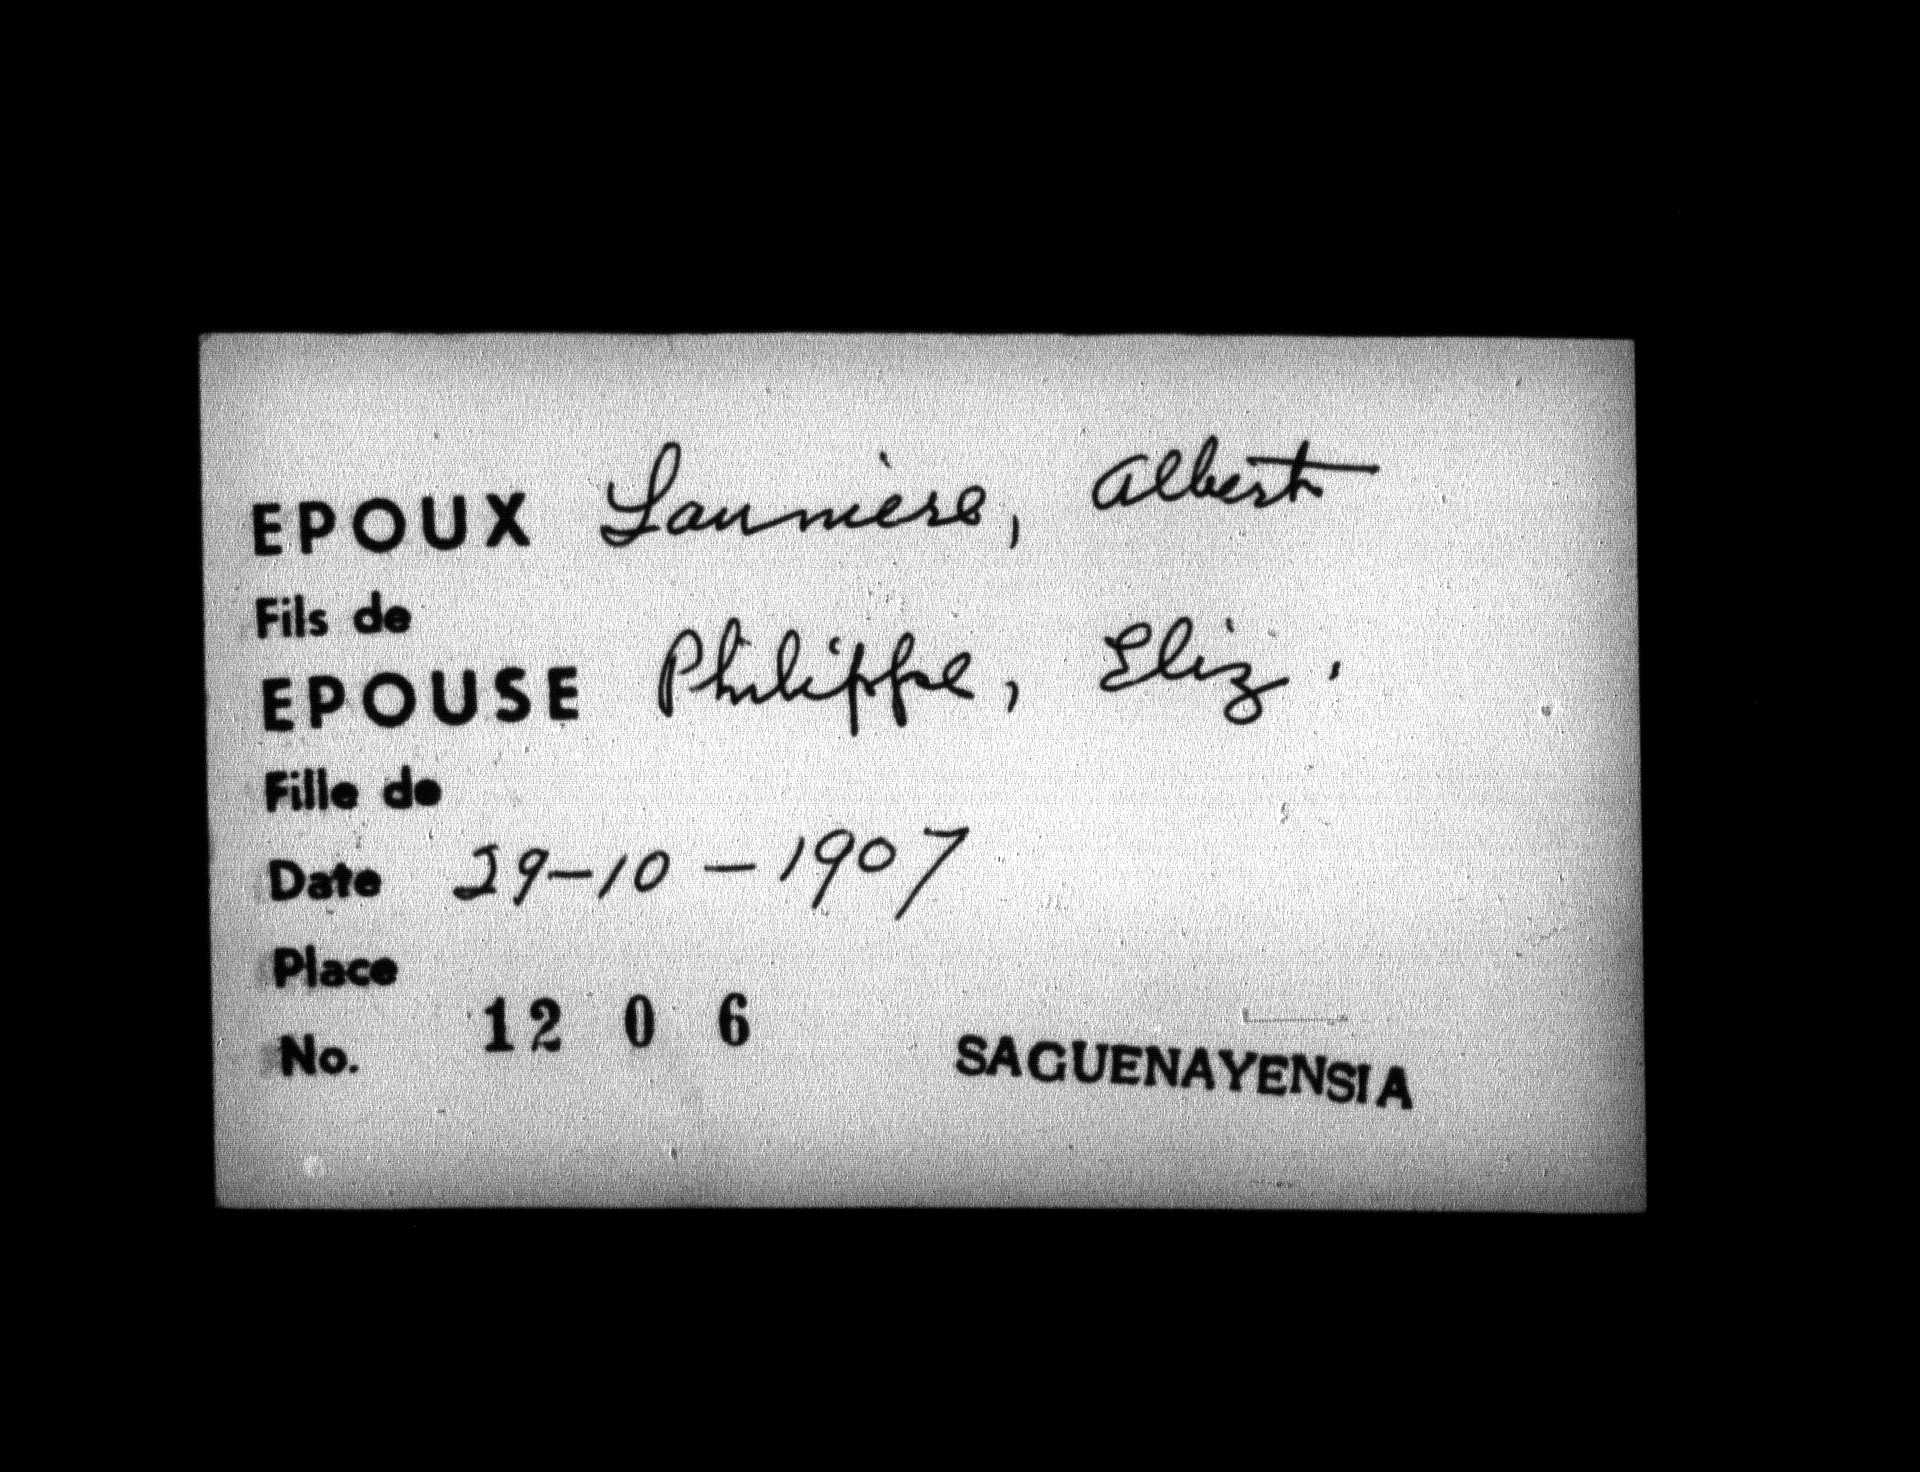 EPOUX Launière, Albert
Fils de
EPOUSE Philippe, Eliz.
Fille de
Date 29-10-1907
Place
No. 12 0 6
SAGUENAYENSIA